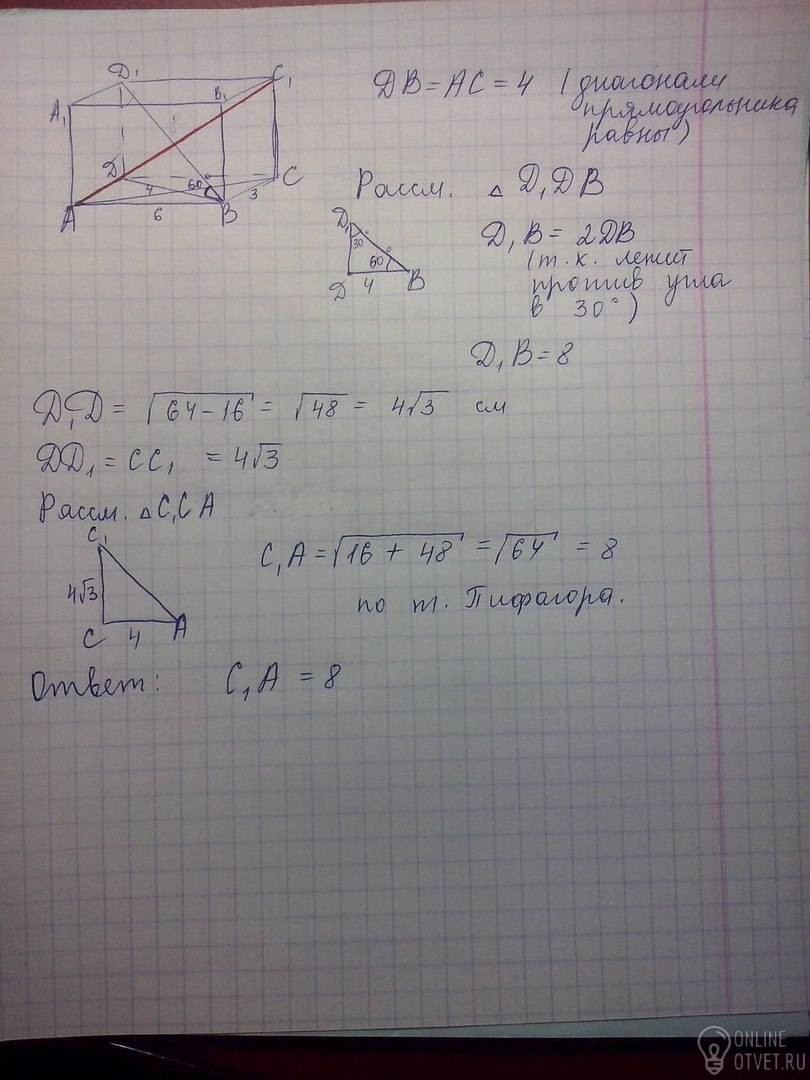 D₁
C₁
A₁
B₁
D
C
4
60°
3
A
6
B
DB = AC = 4 (диагонали
прямоугольника
равны)
Рассм. △ D₁DB
D₁
30°
60°
D
4
B
D₁B = 2DB
(т.к. лежит
против угла
в 30°)
D₁B = 8
D₁D = √64-16 = √48 = 4√3 см
DD₁ = CC₁ = 4√3
Рассм. △ C₁CA
C₁
4√3
C
4
A
C₁A = √16 + 48 = √64 = 8
по т. Пифагора.
Ответ: C₁A = 8
ONLINE
OTVET.RU